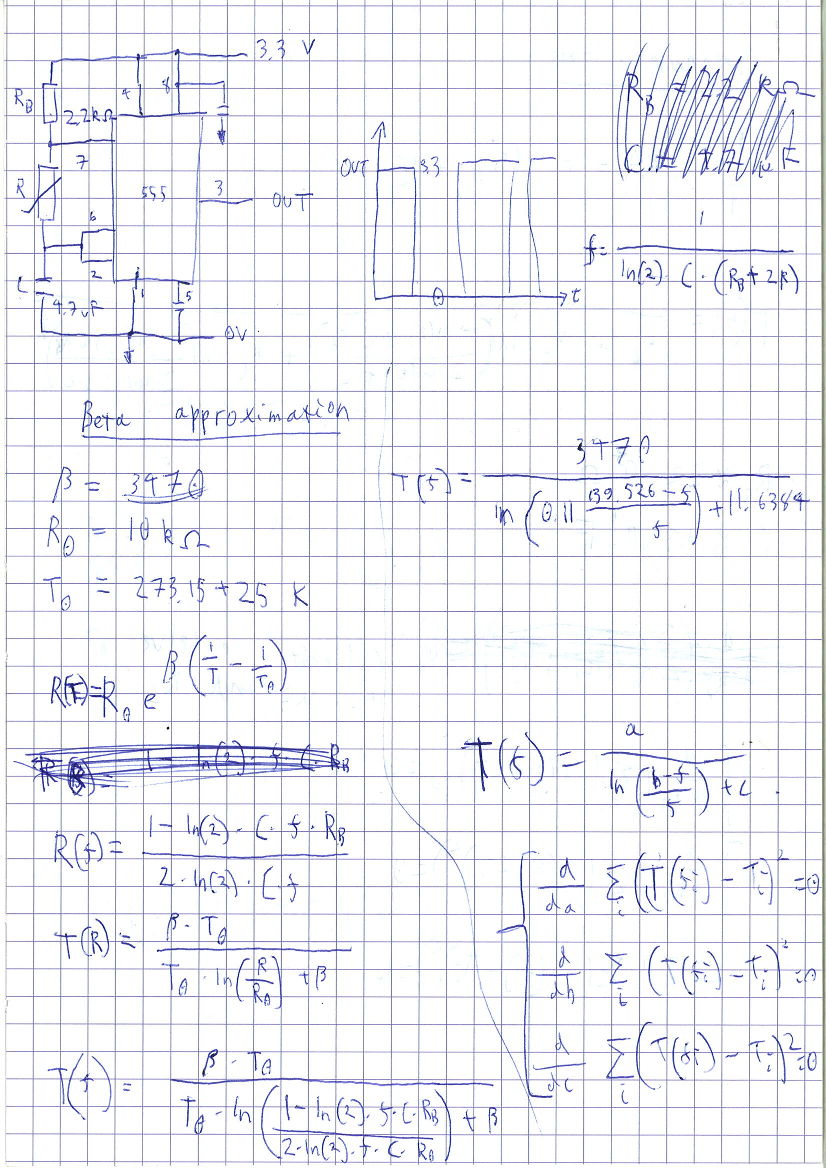 3.3 V
R_B 2.2kΩ
4
8
7
R
555
3
OUT
6
2
C
4.7uF
1
5
0V
OUT
3.3
0
t
f = 1 / (ln(2) · C · (R_B + 2R))
Beta approximation
β = 3470
R_0 = 10 kΩ
T_0 = 273.15 + 25 K
R(T) = R_0 e^{β(1/T - 1/T_0)}
R(f) = (1 - ln(2) · C · f · R_B) / (2 · ln(2) · C · f)
T(R) = (β · T_0) / (T_0 · ln(R/R_0) + β)
T(f) = (β · T_0) / (T_0 · ln((1 - ln(2) · f · C · R_B) / (2 · ln(2) · f · C · R_0)) + β)
T(f) = 3470 / (ln(0.11 (139.526 - f) / f) + 11.6384)
T(f) = a / (ln((b - f) / f) + c)
d/da Σ_i (T(f_i) - T_i)^2 = 0
d/db Σ_i (T(f_i) - T_i)^2 = 0
d/dc Σ_i (T(f_i) - T_i)^2 = 0